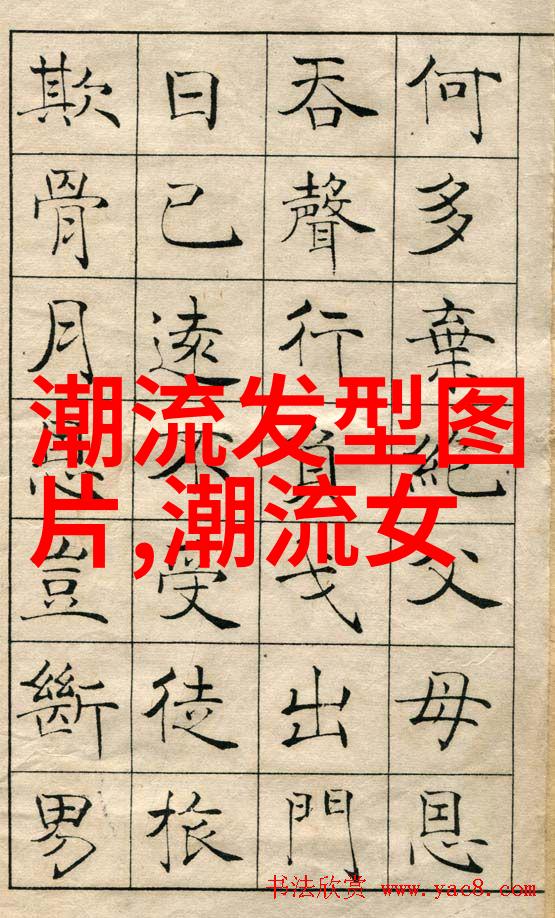 何多棄絕父母恩
吞聲行負戈出門
日已遠不受徒旅
欺骨月恩豈斷男
潮流发型图
片,潮流女
书法欣赏 www.yac8.com